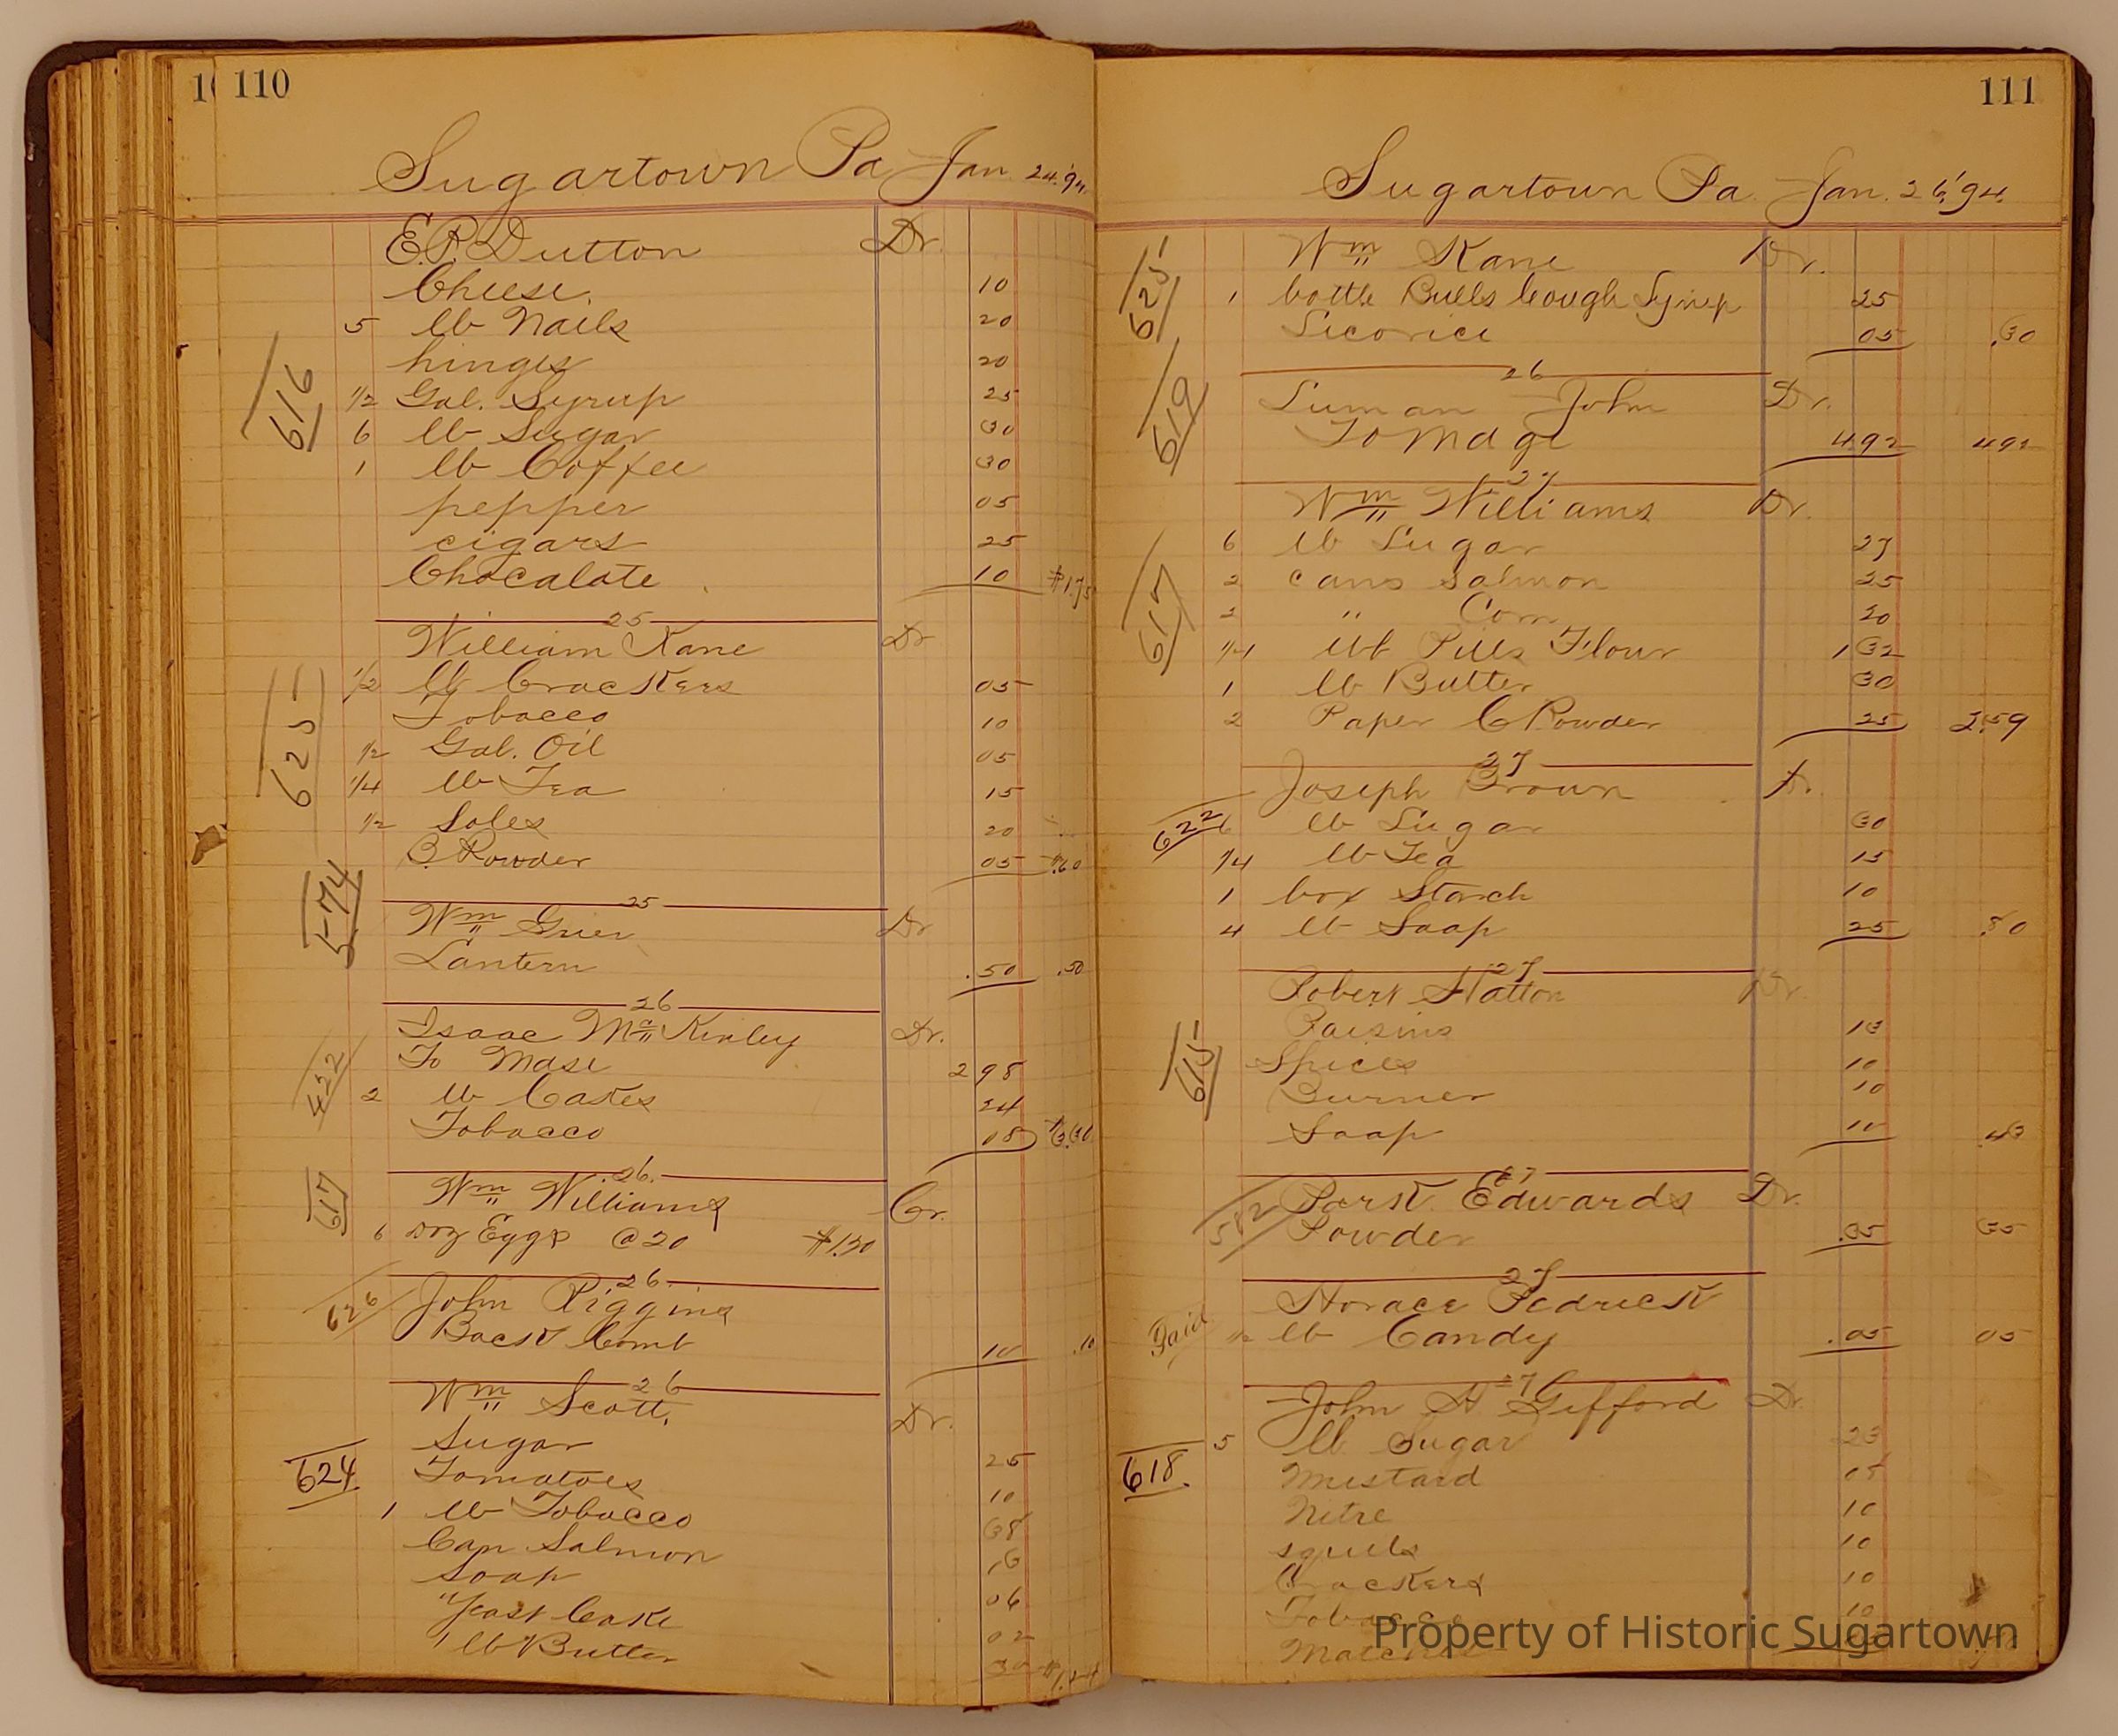 110
Sugartown Pa Jan 24, '94
E.P. Dutton Dr.
616
Cheese. 10
5 lb Nails 20
hinges 20
1/2 Gal. Syrup 25
6 lb Sugar 30
1 lb Coffee 30
pepper 05
cigars 25
Chocalate. 10 $1.75
25
William Kane Dr
625
1/2 lb Crackers 05
Tobacco 10
1/2 Gal. Oil 05
1/4 lb Tea 15
1/2 Soles 20
B. Powder 05 $.60
574
25
Wm Grier Dr
Lantern .50 .50
26
422
Isaac McKinley Dr.
To Mdse 2 98
2 lb Cakes 24
Tobacco 08 $3.30
26.
617
Wm Williams Cr.
6 Doz Eggs @ 20 $1.20
26.
626
John Riggins
Back Comb 10 .10
26
Wm Scott, Dr.
624
Sugar 25
Tomatoes 10
1 lb Tobacco 38
Can Salmon 13
Soap 06
Yeast Cake 02
1 lb Butter 30 $1.24
111
Sugartown Pa. Jan. 26, '94.
625
Wm Kane Dr.
1 bottle Bulls Cough Syrup 25
Licorice 05 .30
26
619
Luman John Dr.
To Mdse 4.92 4 92
27
617
Wm Williams Dr.
6 lb Sugar 27
2 cans Salmon 25
2 " Corn 20
1/4 bbl Pills Flour 1 32
1 lb Butter 30
2 Paper C Powder 25 2.59
27
622
Joseph Brown Dr.
6 lb Sugar 30
1/4 lb Tea 15
1 box Starch 10
4 lb Soap 25 .80
27
615
Robert Hatton Dr.
Raisins 13
Spices 10
Burner 10
Soap 10 .43
27
512
Park Edwards Dr.
Powder .35 35
27
Paid
Horace Pedrick
1/2 lb Candy .05 05
27
618.
John H Gifford Dr.
5 lb Sugar 23
Mustard 05
Nitre 10
squills 10
Crackers 10
Tobacco 10
Matches
Property of Historic Sugartown